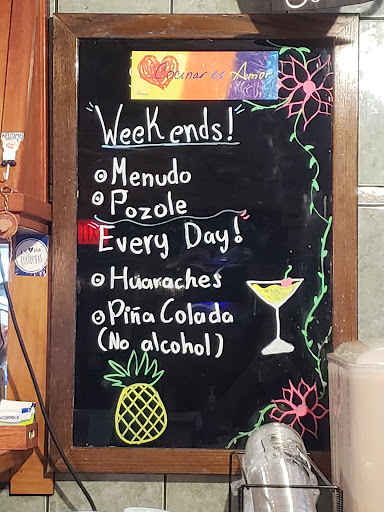 Cocinar es Amor
"Weekends!"
Menudo
Pozole
Every Day!
Huaraches
Piña Colada
(No alcohol)